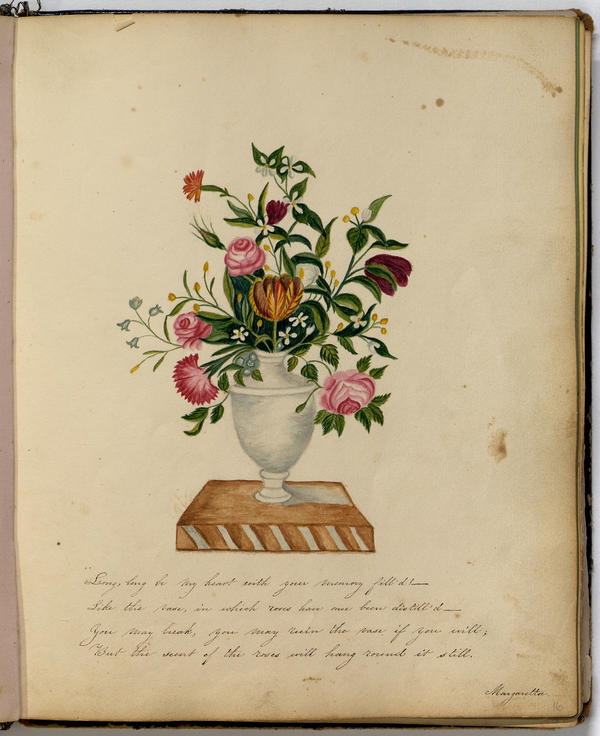 "Long, long be my heart with your memory fill'd!—
Like the vase, in which roses have once been distill'd—
You may break, you may ruin the vase if you will;
But the scent of the roses will hang round it still.
Margaretta.
16